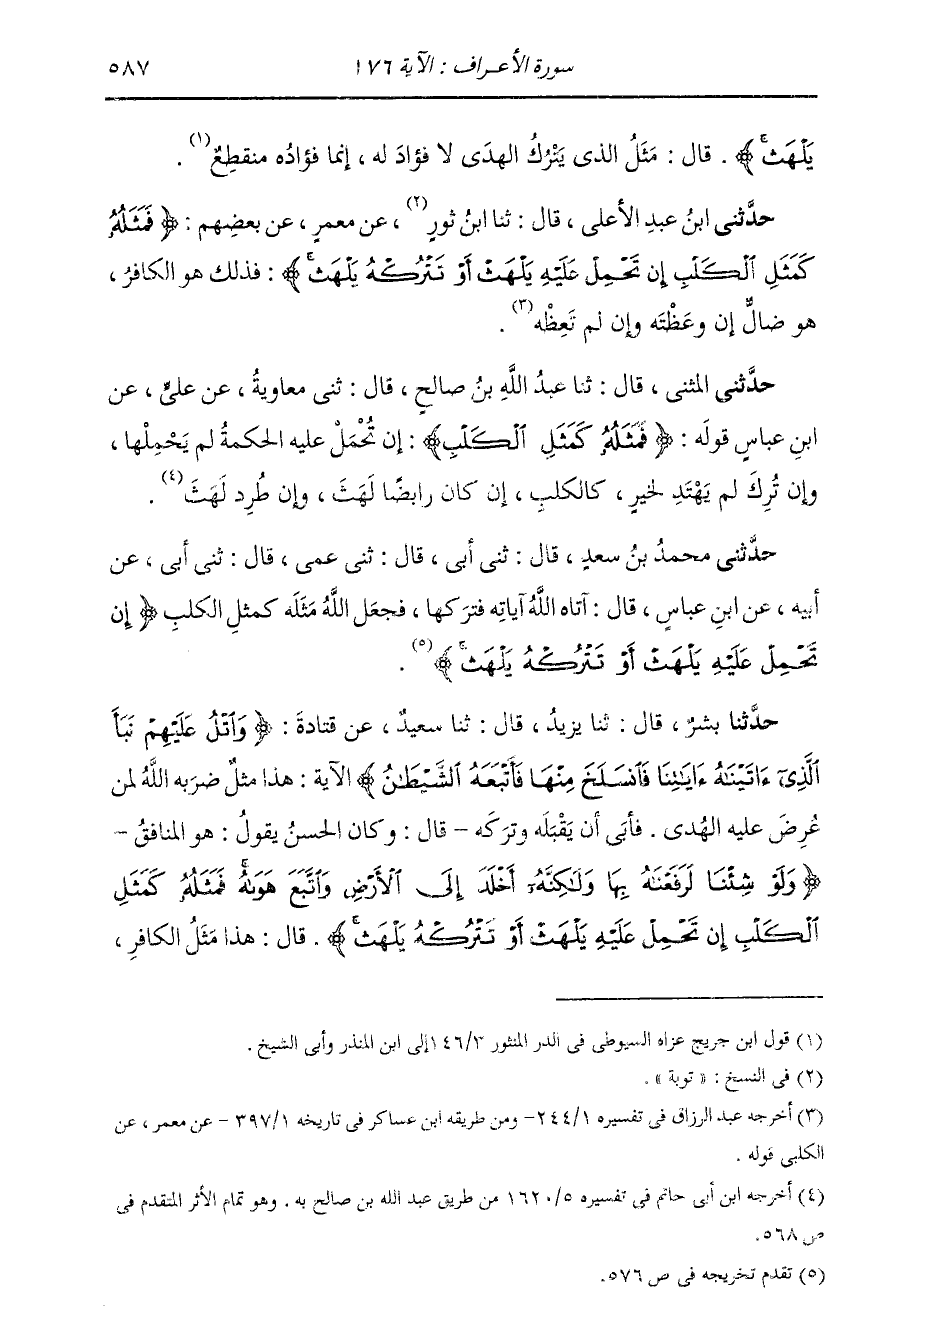 سورة الأعراف : الآية ١٧٦ ٥٨٧
يَلْهَثْ ﴾ . قال : مَثَلُ الذى يَتْرُكُ الهدَى لا فؤادَ له ، إنما فؤادُه منقطِعٌ(١) .
حدَّثنى ابنُ عبدِ الأعلى ، قال : ثنا ابنُ ثورٍ(٢) ، عن معمرٍ ، عن بعضِهم : ﴿ فَمَثَلُهُۥ
كَمَثَلِ ٱلْكَلْبِ إِن تَحْمِلْ عَلَيْهِ يَلْهَثْ أَوْ تَتْرُكْهُ يَلْهَثْ ﴾ : فذلك هو الكافرُ ،
هو ضالٌّ إن وعَظْتَه وإن لم تَعِظْه(٣) .
حدَّثنى المثنى ، قال : ثنا عبدُ اللَّهِ بنُ صالحٍ ، قال : ثنى معاويةُ ، عن علىٍّ ، عن
ابنِ عباسٍ قولَه : ﴿ فَمَثَلُهُۥ كَمَثَلِ ٱلْكَلْبِ ﴾ : إن تُحْمَلْ عليه الحكمةُ لم يَحْمِلْها ،
وإن تُرِكَ لم يَهْتَدِ لخيرٍ ، كالكلبِ ، إن كان رابضًا لَهَثَ ، وإن طُرِد لَهَثَ(٤) .
حدَّثنى محمدُ بنُ سعدٍ ، قال : ثنى أبى ، قال : ثنى عمى ، قال : ثنى أبى ، عن
أبيه ، عن ابنِ عباسٍ ، قال : آتاه اللَّهُ آياتِه فترَكها ، فجعَل اللَّهُ مَثَلَه كمثلِ الكلبِ ﴿ إِن
تَحْمِلْ عَلَيْهِ يَلْهَثْ أَوْ تَتْرُكْهُ يَلْهَثْ ﴾(٥) .
حدَّثنا بشرٌ ، قال : ثنا يزيدُ ، قال : ثنا سعيدٌ ، عن قتادةَ : ﴿ وَٱتْلُ عَلَيْهِمْ نَبَأَ
ٱلَّذِىٓ ءَاتَيْنَٰهُ ءَايَٰتِنَا فَٱنسَلَخَ مِنْهَا فَأَتْبَعَهُ ٱلشَّيْطَٰنُ ﴾ الآية : هذا مثلٌ ضرَبه اللَّهُ لمن
عُرِضَ عليه الهُدى . فأبَى أن يَقْبَلَه وترَكه – قال : وكان الحسنُ يقولُ : هو المنافقُ –
﴿ وَلَوْ شِئْنَا لَرَفَعْنَٰهُ بِهَا وَلَٰكِنَّهُۥٓ أَخْلَدَ إِلَى ٱلْأَرْضِ وَٱتَّبَعَ هَوَىٰهُ فَمَثَلُهُۥ كَمَثَلِ
ٱلْكَلْبِ إِن تَحْمِلْ عَلَيْهِ يَلْهَثْ أَوْ تَتْرُكْهُ يَلْهَثْ ﴾ . قال : هذا مَثَلُ الكافرِ ،
(١) قول ابن جريج عزاه السيوطى فى الدر المنثور ١٤٦/٣ إلى ابن المنذر وأبى الشيخ .
(٢) فى النسخ : « توبة » .
(٣) أخرجه عبد الرزاق فى تفسيره ٢٤٤/١ – ومن طريقه ابن عساكر فى تاريخه ٣٩٧/١ – عن معمر ، عن
الكلبى قوله .
(٤) أخرجه ابن أبى حاتم فى تفسيره ١٦٢٠/٥ من طريق عبد الله بن صالح به . وهو تمام الأثر المتقدم فى
ص ٥٦٨.
(٥) تقدم تخريجه فى ص ٥٧٦.